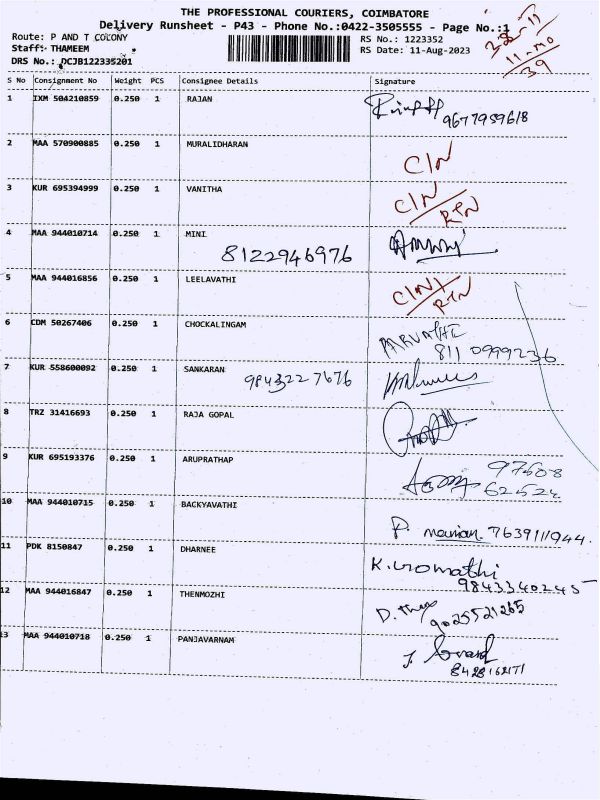 THE PROFESSIONAL COURIERS, COIMBATORE
Delivery Runsheet - P43 - Phone No.:0422-3505555 - Page No.:1
Route: P AND T COLONY RS No.: 1223352
Staff: THAMEEM RS Date: 11-Aug-2023
DRS No.: DCJB122335201
39
S No Consignment No Weight PCS Consignee Details Signature
1 IXM 504210859 0.250 1 RAJAN
9677959618
2 MAA 570900885 0.250 1 MURALIDHARAN
C/N
3 KUR 695394999 0.250 1 VANITHA C/N
RTN
4 MAA 944010714 0.250 1 MINI
8122946976
5 MAA 944016856 0.250 1 LEELAVATHI C/N
RTN
6 CDM 50267406 0.250 1 CHOCKALINGAM PARVATHI
811 0999236
7 KUR 558600092 0.250 1 SANKARAN 9843227676
8 TRZ 31416693 0.250 1 RAJA GOPAL
9 KUR 695193376 0.250 1 ARUPRATHAP 97508
62524
10 MAA 944010715 0.250 1 BACKYAVATHI
P. 7639111944.
11 PDK 8150847 0.250 1 DHARNEE K.
9843340245
12 MAA 944016847 0.250 1 THENMOZHI D.
9025521265
13 MAA 944010718 0.250 1 PANJAVARNAM